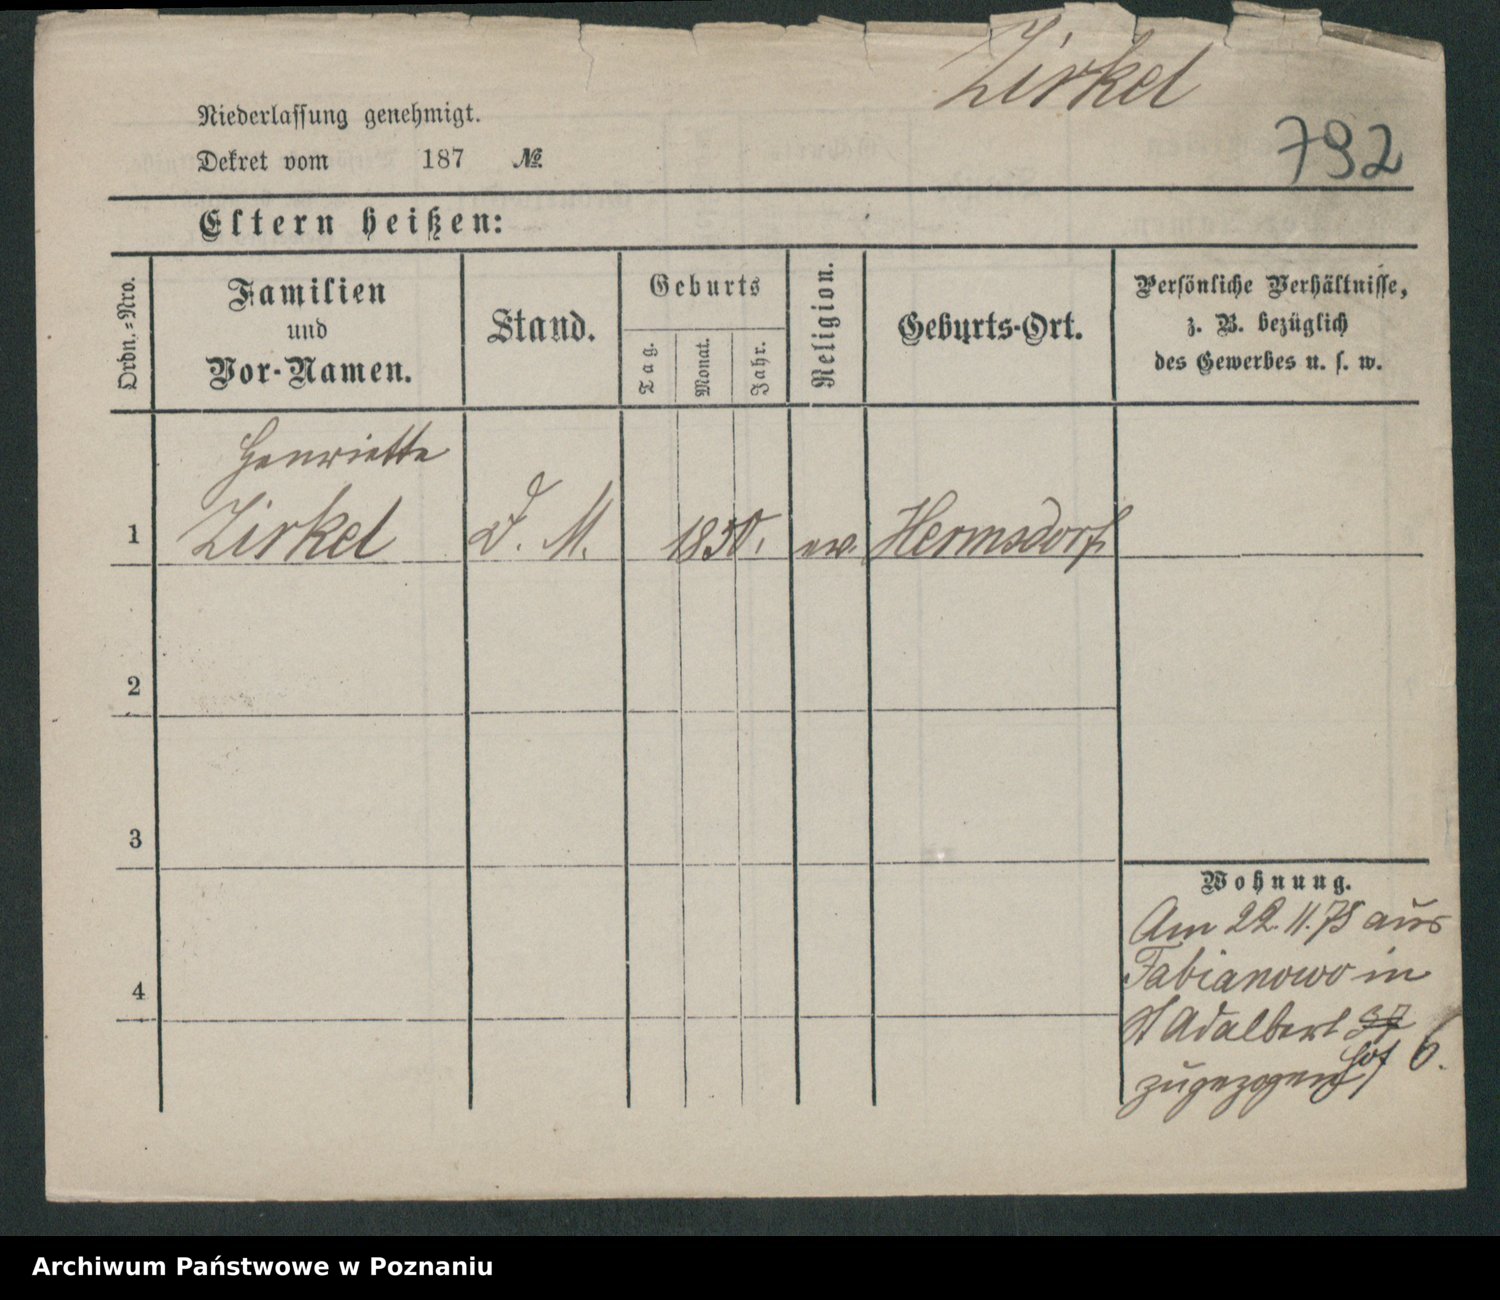 Zirkel
792
Niederlassung genehmigt.
Dekret vom 187 №
Eltern heißen:
Ordn.-Nro.
Familien
und
Vor-Namen.
Stand.
Geburts
Tag.
Monat.
Jahr.
Religion.
Geburts-Ort.
Persönliche Verhältnisse,
z. B. bezüglich
des Gewerbes u. s. w.
Henriette
1 Zirkel D. M. 1850. ev. Hermsdorf
2
3
4
Wohnung.
Am 22.11.78 aus
Fabianowo in
St Adalbert 37
hof 6.
zugezogen
Archiwum Państwowe w Poznaniu